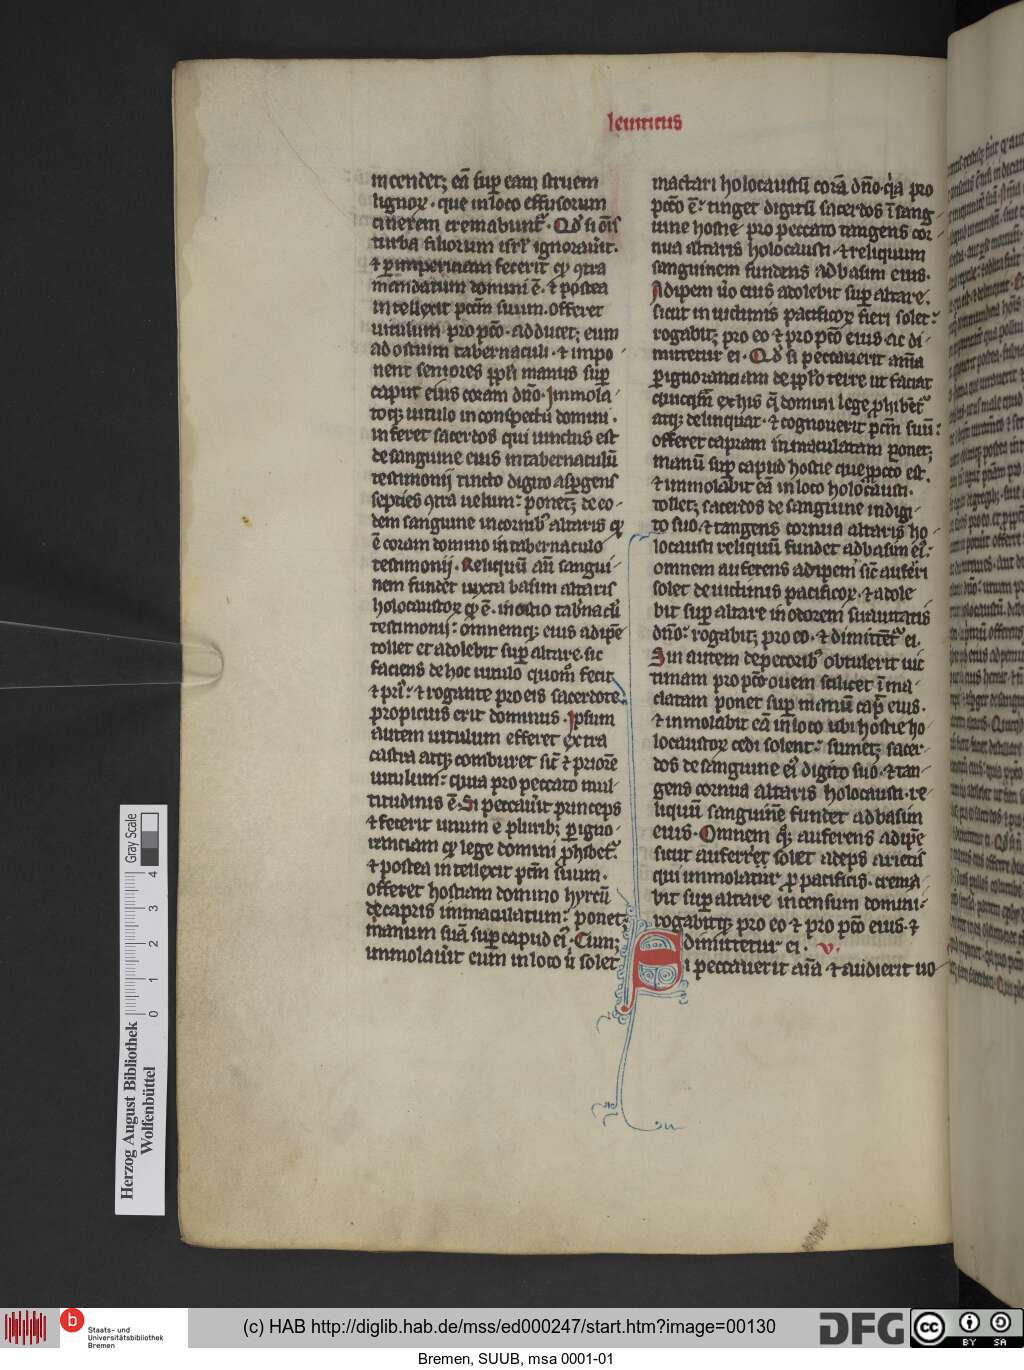 leuiticus
incendet; eā sup̲ eam struem
lignoꝝ · que in loco effusorum
cinerem cremabunt᷑ · Qd̓ si oīs
turba filiorum isrł ignorau̓it ·
⁊ p̲ imperitiam fecerit qꝫ ꝯtra
mandatum domini ē · ⁊ postea
intellexit pctm̄ suum · offeret
uitulum pro pctō · adducet; eum
ad ostium tabernaculi · ⁊ impo-
nent seniores pp̄li manus sup̲
caput eius coram dn̄o · Immola-
toqꝫ uitulo in conspectu domini ·
inferet sacerdos qui unctus est
de sanguine eius in tabernaculū
testimonij tincto digito asp̲gens
septies ꝯtra uelum: ponet; de eo-
dem sanguine in cornibꝰ altaris qꝫ
ē coram domino in tabernaculo
testimonij · Reliquū aūt sangui-
nem fundet iuxta basim altaris
holocaustoꝝ qꝫ ē · in ostio tab̓nac̄li
testimonij: omnemqꝫ eius adipē
tollet et adolebit sup̲ altare · sic
faciens de hoc uitulo quom̊ fecit
⁊ pri᷑: ⁊ rogante pro eis sacerdote
propicius erit dominus · Ipsum
autem uitulum efferet extra
castra atqꝫ comburet sic̄ ⁊ priorē
uitulum: quia pro peccato mul-
titudinis ē · Si peccau̓it princeps
⁊ fecerit unum e pluribꝫ p̲ igno-
rantiam qꝫ lege domini ꝓhibet᷑:
⁊ postea intellexit pctm̄ suum ·
offeret hostiam domino hyrcū
de capris immaculatum: ponet;
manum suā sup̲ capud eiꝰ · Cum;
immolau̓it eum in loco u̓ solet
mactari holocaustū corā dn̄o · q̓a pro
pctō ē: tinget digitū sacerdos ī sang-
uine hostie pro peccato tangens cor-
nua altaris holocausti · ⁊ reliquum
sanguinem fundens ad basim eius ·
Adipem u̓o eius adolebit sup̲ altare ·
sicut in uictimis pacificoꝝ fieri solet:
rogabit; pro eo ⁊ pro pctō eius · ac di-
mittetur ei · Qd̓ si peccauerit aīa
p̲ ignorantiam de pp̄lo terre ut faciat
quicqm̄ ex his q̄ domini lege ꝓhibēt᷑
atqꝫ delinquat · ⁊ cognouerit pctm̄ suū:
offeret capram inmaculatam ponet;
manū sup̲ capud hostie que ꝓ pctō est ·
⁊ immolabit eā in loco holocausti ·
tollet; sacerdos de sanguine in digi-
to suo · ⁊ tangens cornua altaris ho-
locausti reliquū fundet ad basim eiꝰ:
omnem auferens adipem sic̄ aufer̓i
solet de uictimis pacificoꝝ · ⁊ adole-
bit sup̲ altare in odorem suauitatis
dn̄o: rogabit; pro eo · ⁊ dimittet᷑ ei ·
Sin autem de pecoribꝰ obtulerit uic-
timam pro pctō ouem scilicet īma-
culatam ponet sup̲ manū cap̄ eius ·
⁊ inmolabit eā in loco ubi hostie ho-
locaustoꝝ cedi solent: sumet; sacer-
dos de sanguine eiꝰ digito suo · ⁊ tan-
gens cornua altaris holocausti · re-
liquū sanguinē fundet ad basim
eius · Omnem qꝫ auferens adipē
sicut auferret solet adeps arietis
qui immolatur ꝓ pacificis · crema-
bit sup̲ altare incensum domini ·
rogabitqꝫ pro eo ⁊ pro pctō eius · ⁊
dimittetur ei · v ·
Si peccauerit aīa ⁊ audierit uo-
Gray Scale
0 1 2 3 4
Herzog August Bibliothek
Wolfenbüttel
b
Staats- und
Universitätsbibliothek
Bremen
(c) HAB http://diglib.hab.de/mss/ed000247/start.htm?image=00130
DFG
cc BY SA
Bremen, SUUB, msa 0001-01